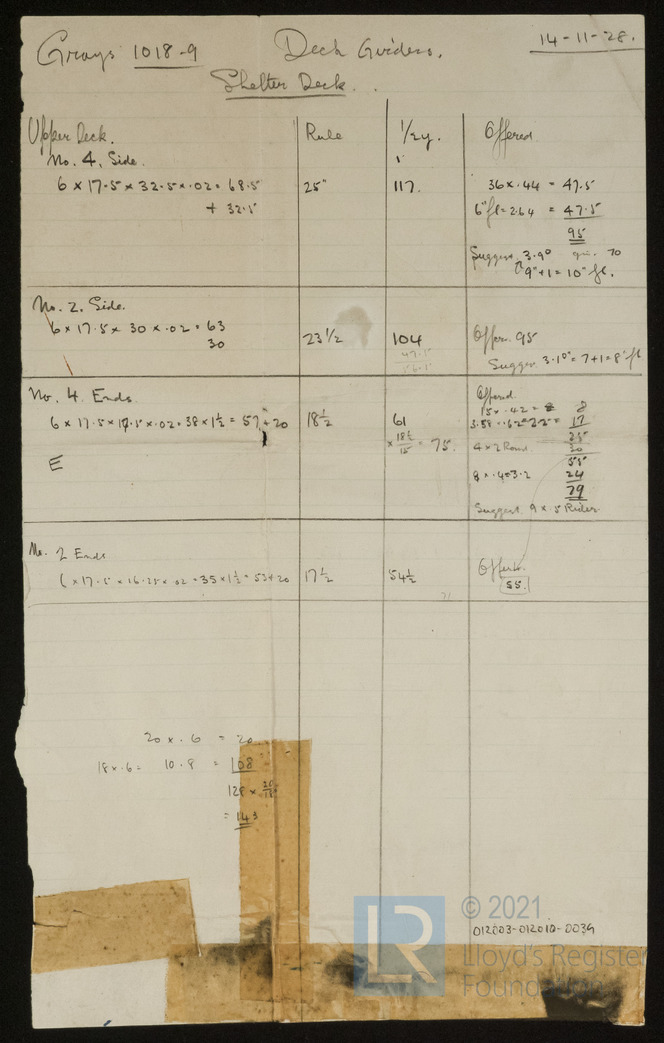 Grays 1018-9 Deck Girders. 14-11-28.
Shelter Deck.
Upper Deck. Rule 1/2y. Offered
No. 4. Side.
6 × 17.5 × 32.5 × .02 = 68.5 25" 117. 36 × .44 = 47.5
+ 32.5 6" fl = 2.64 = 47.5
95
Suggest 3.9° 70
9" + 1 = 10" fl.
No. 2. Side.
6 × 17.5 × 30 × .02 = 63 23 1/2 104 Offer. 95
30
Suggest 3.10° = 7+1 = 8" fl
No. 4. Ends Offered.
6 × 17.5 × 17.5 × .02 = 38 × 1 1/2 = 57 + 20 18 1/2 61 15 × .42 = 8
17
× 18 1/2 / 15 = 75. 25
4 × 2 Round 30
E 55
8 × .4 = 3.2 24
79
Suggest 9 × .5 Rider
No. 2 Ends.
6 × 17.5 × 16.25 × .02 = 35 × 1 1/2 = 53 + 20 17 1/2 54 1/2 Offer.
55.
20 × .6 = 20
18 × .6 = 10.8 = 108
128 ×
= 143
© 2021
012003-012010-0039
LR Lloyd's Register
Foundation